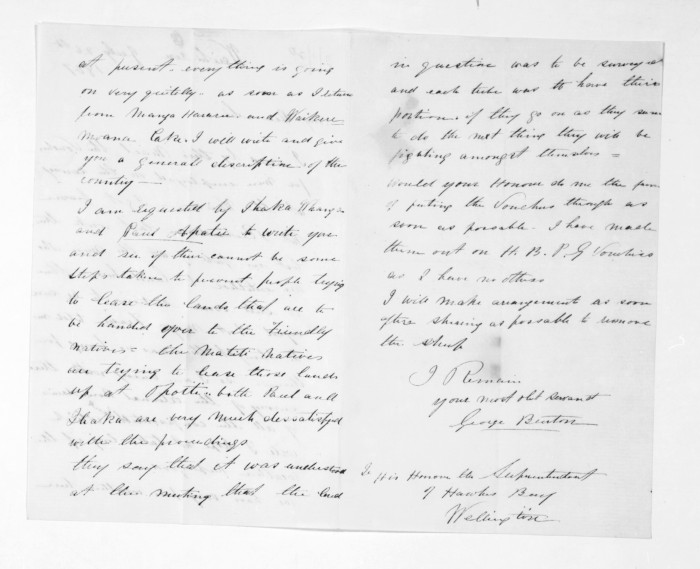 at present. everything is going
on very quietly. as soon as I return
from Manga Haruru and Waikare
moana Lake. I will write and give
you a generall description of the
country —
I am requested by Ihaka
and Paul Apatu to write you
and see if there cannot be some
steps taken to prevent people trying
to lease the lands that are to
be handed over to the Friendly
natives - the natives
are trying to lease those lands
up at both Paul and
Ihaka are very much dessatisfyd
with the proceedings
they say that it was understood
at the meeting that the land
in question was to be surveyed
and each tribe was to have their
portion. if they go on as they
to do the next thing they will be
fighting amongst themselves =
Would your Honour do me the favor
of puting the Vouchers through as
soon as possable. I have made
them out on H. B. P. G Vouchers
as I have no others
I will make arangement as soon
after shearing as possable to remove
the sheep
I Remain
your most obt servant
George Burton
To His Honour the Superintendent
of Hawkes Bay
Wellington